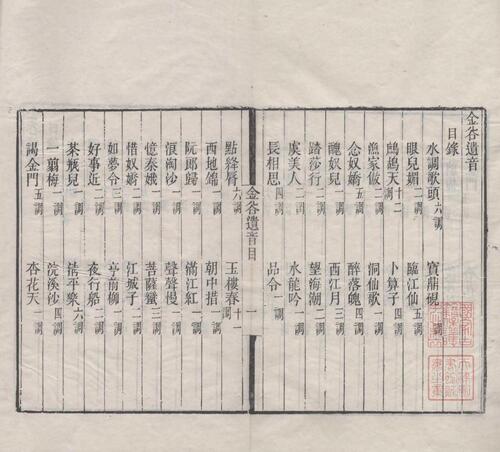 金谷遺音
目錄
水調歌頭六調 寶鼎現一調
眼兒媚二調 臨江仙五調
鷓鴣天十二調 卜算子四調
漁家傲二調 洞仙歌一調
念奴嬌五調 醉落魄四調
醜奴兒一調 西江月三調
踏莎行二調 望海潮二調
虞美人二調 水龍吟一調
長相思四調 品令一調
金谷遺音目 一
點絳脣六調 玉樓春十一調
西地錦一調 朝中措一調
阮郎歸一調 滿江紅一調
浪淘沙一調 聲聲慢一調
憶秦娥一調 菩薩蠻三調
惜奴嬌二調 江城子二調
如夢令三調 亭前柳一調
好事近二調 夜行船二調
茶瓶兒一調 清平樂六調
一翦梅一調 浣溪沙四調
謁金門五調 杏花天一調